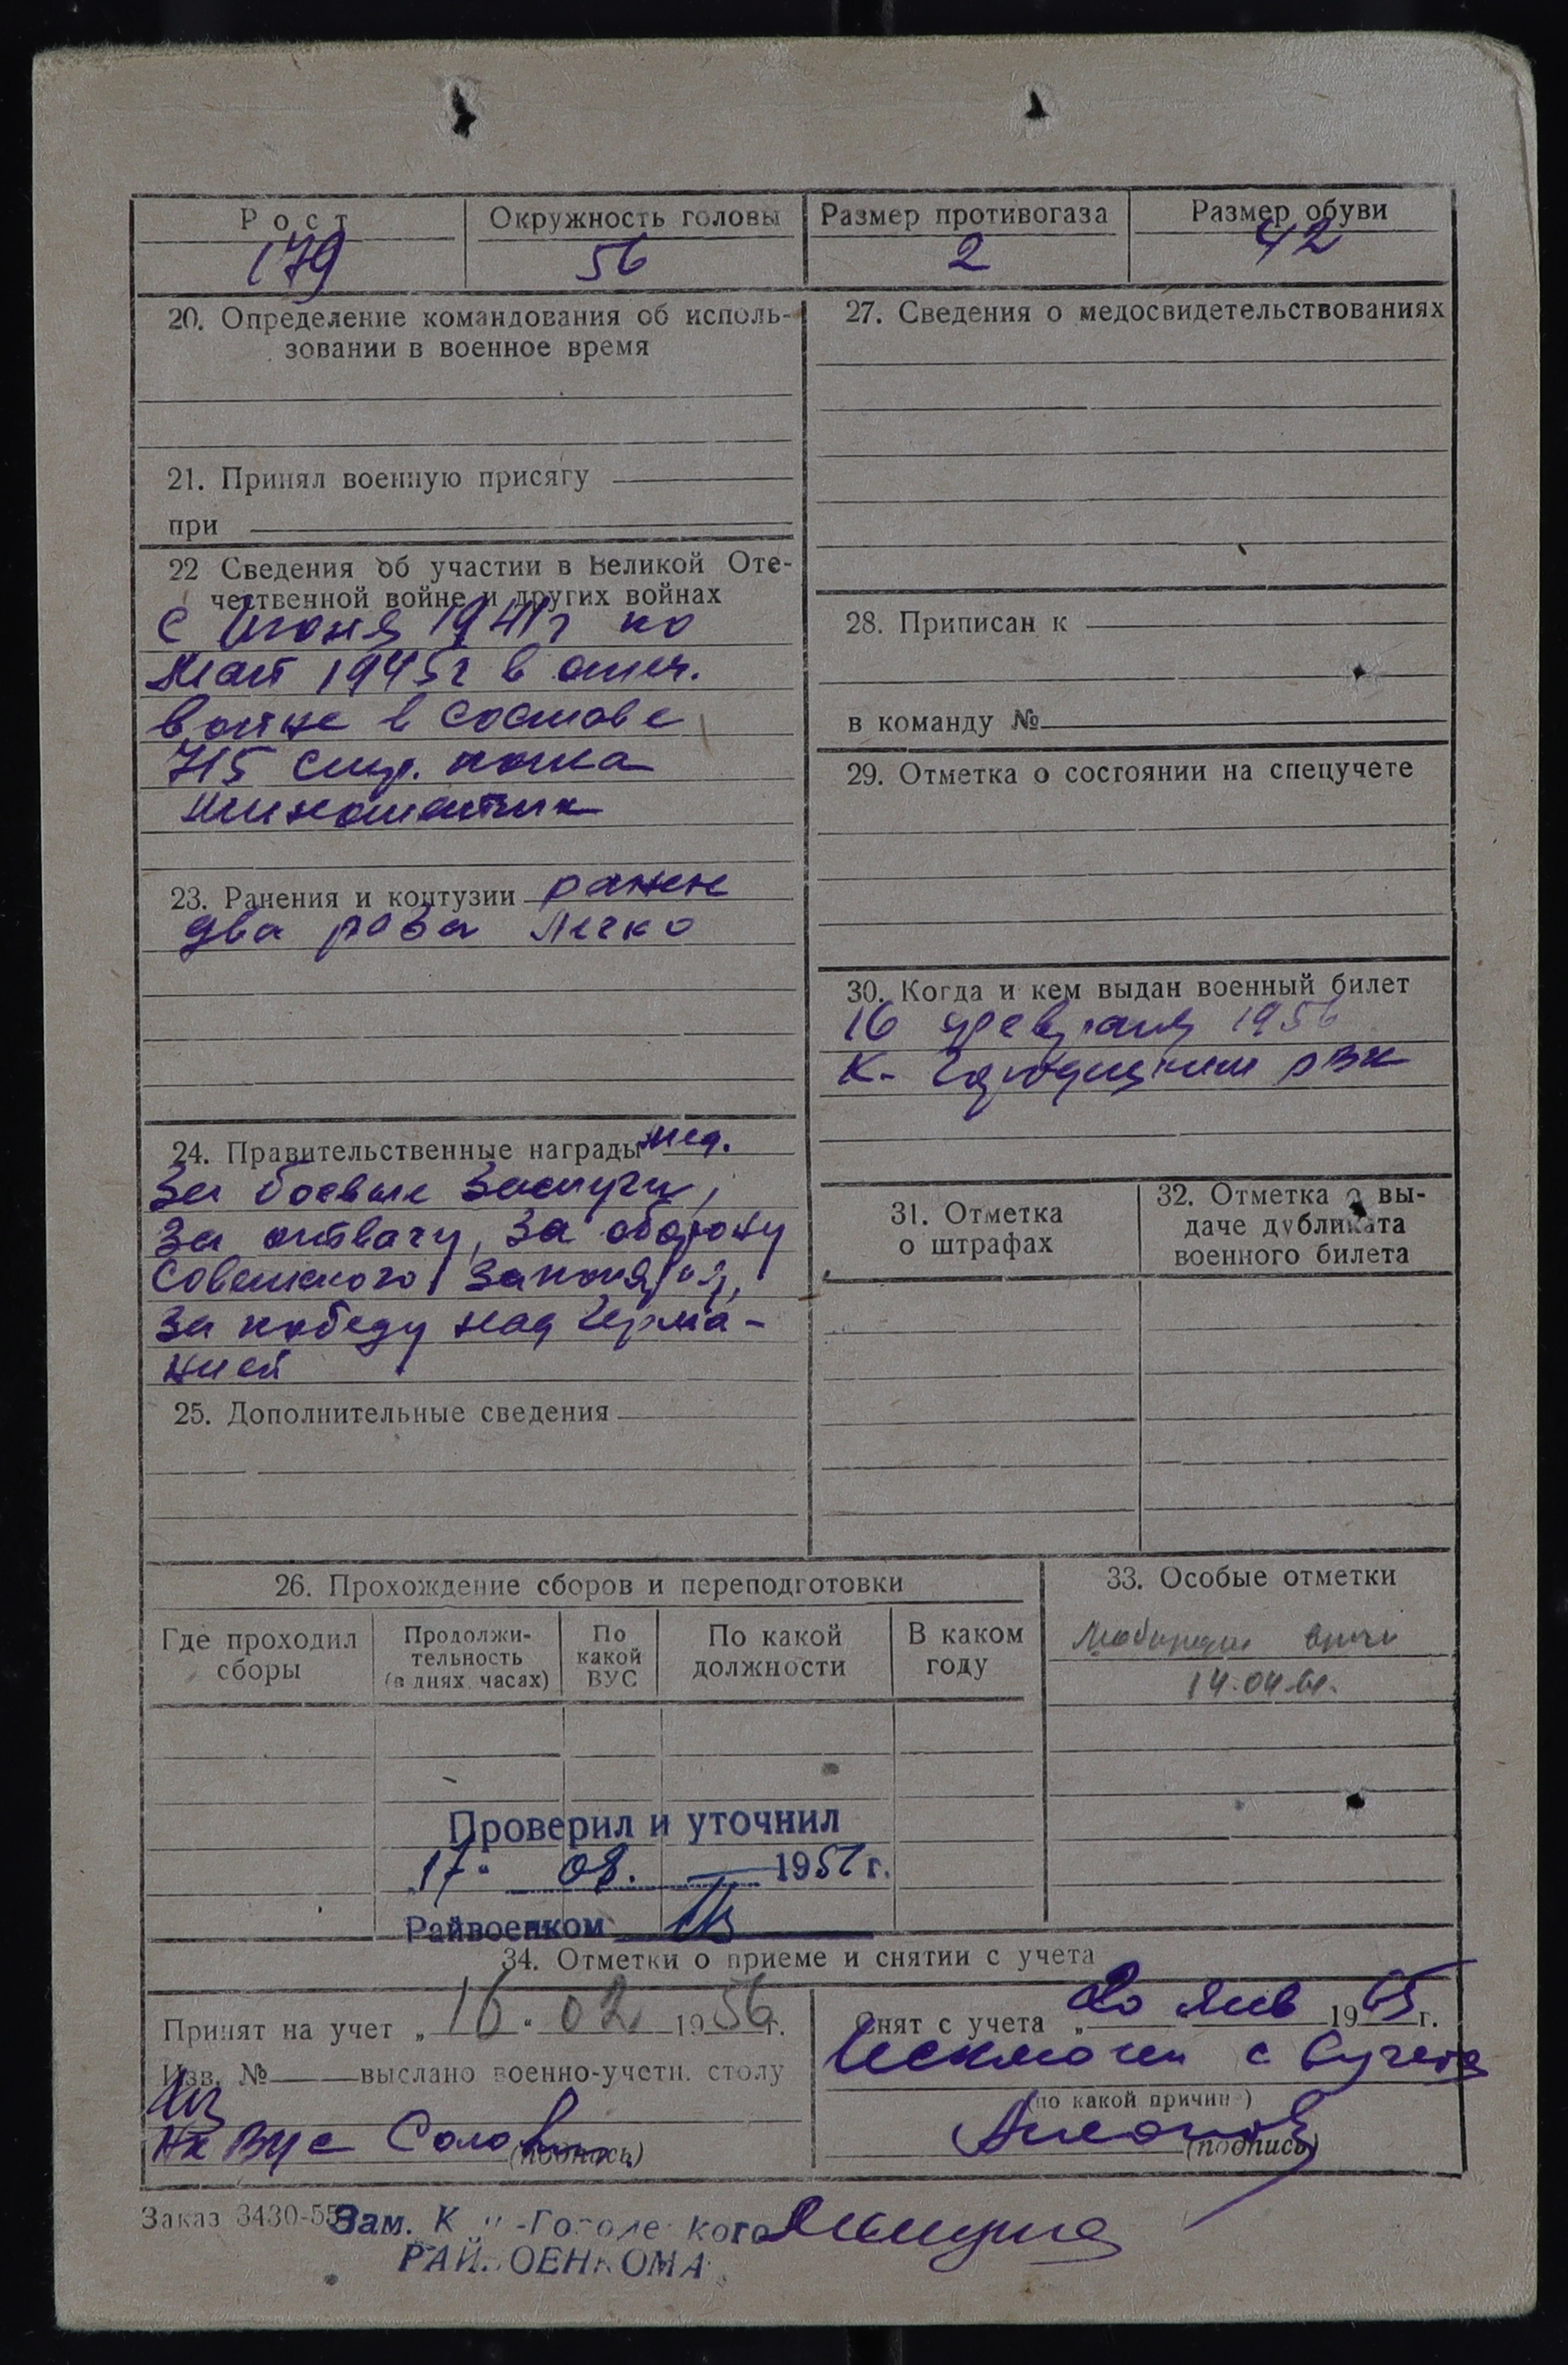 Рост Окружность головы Размер противогаза Размер обуви
179 56 2 42
20. Определение командования об исполь-
зовании в военное время
21. Принял военную присягу
при
22 Сведения об участии в Великой Оте-
чественной войне и других войнах
с Июня 1941г по
Май 1945г в отеч.
войне в составе
715 стр. полка
минометчик
23. Ранения и контузии ранен
два раза легко
24. Правительственные награды мед.
За боевые заслуги,
За отвагу, За оборону
Советского Заполярья,
За победу над Герма-
нией
25. Дополнительные сведения
27. Сведения о медосвидетельствованиях
28. Приписан к
в команду №
29. Отметка о состоянии на спецучете
30. Когда и кем выдан военный билет
16 февраля 1956
К- Городищким РВК
31. Отметка
о штрафах
32. Отметка о вы-
даче дубликата
военного билета
26. Прохождение сборов и переподготовки
Где проходил
сборы
Продолжи-
тельность
(в днях, часах)
По
какой
ВУС
По какой
должности
В каком
году
33. Особые отметки
14.04.61.
Проверил и уточнил
17" 08. 1956 г.
Райвоенком
34. Отметки о приеме и снятии с учета
Принят на учет „16" 02 1956 г.
Изв. № выслано военно-учетн. столу
Нк ВУС
(подпись)
Снят с учета „20 Янв 1965 г.
Исключен с в/учета
(по какой причине)
(подпись)
Заказ 3430-55
Зам. К
РАЙВОЕНКОМА